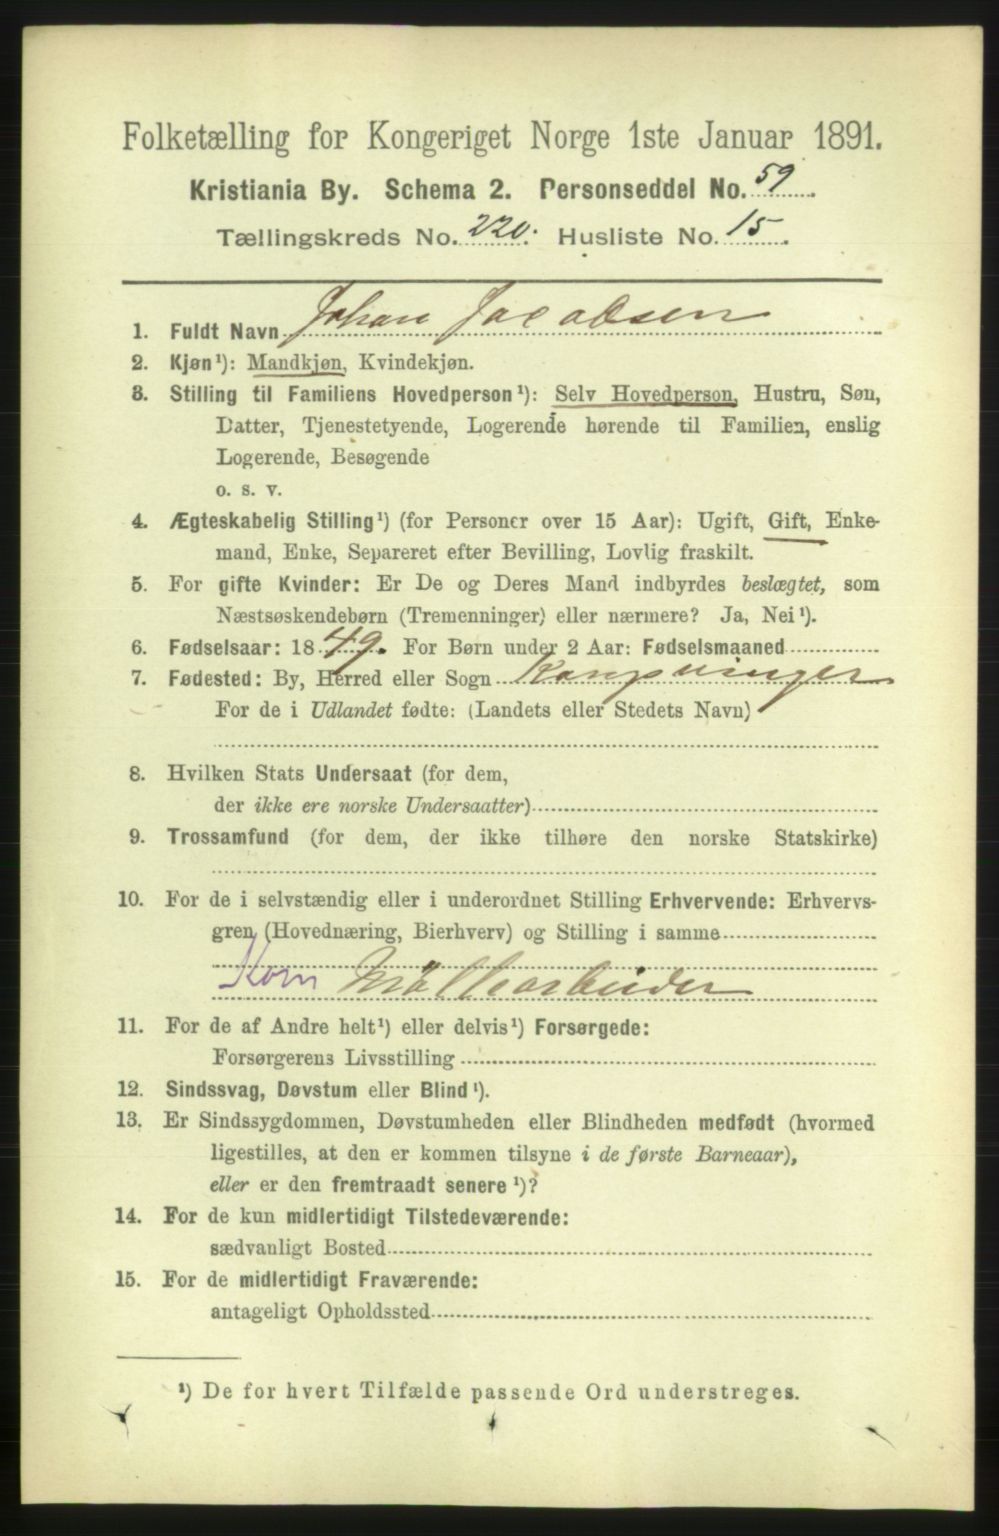 Folketælling for Kongeriget Norge 1ste Januar 1891.
Kristiania By. Schema 2. Personseddel No. 59.
Tællingskreds No. 220. Husliste No. 15.
1. Fuldt Navn Johan Jacobsen
2. Kjøn¹): Mandkjøn, Kvindekjøn.
3. Stilling til Familiens Hovedperson¹): Selv Hovedperson, Hustru, Søn,
Datter, Tjenestetyende, Logerende hørende til Familien, enslig
Logerende, Besøgende
o. s. v.
4. Ægteskabelig Stilling¹) (for Personer over 15 Aar): Ugift, Gift, Enke-
mand, Enke, Separeret efter Bevilling, Lovlig fraskilt.
5. For gifte Kvinder: Er De og Deres Mand indbyrdes beslægtet, som
Næstsøskendebørn (Tremenninger) eller nærmere? Ja, Nei¹).
6. Fødselsaar: 1849. For Børn under 2 Aar: Fødselsmaaned
7. Fødested: By, Herred eller Sogn Kongsvinger
For de i Udlandet fødte: (Landets eller Stedets Navn)
8. Hvilken Stats Undersaat (for dem,
der ikke ere norske Undersaatter)
9. Trossamfund (for dem, der ikke tilhøre den norske Statskirke)
10. For de i selvstændig eller i underordnet Stilling Erhvervende: Erhvervs-
gren (Hovednæring, Bierhverv) og Stilling i samme
Korn Möllearbeider
11. For de af Andre helt¹) eller delvis¹) Forsørgede:
Forsørgerens Livsstilling
12. Sindssvag, Døvstum eller Blind¹).
13. Er Sindssygdommen, Døvstumheden eller Blindheden medfødt (hvormed
ligestilles, at den er kommen tilsyne i de første Barneaar),
eller er den fremtraadt senere¹)?
14. For de kun midlertidigt Tilstedeværende:
sædvanligt Bosted
15. For de midlertidigt Fraværende:
antageligt Opholdssted
¹) De for hvert Tilfælde passende Ord understreges.